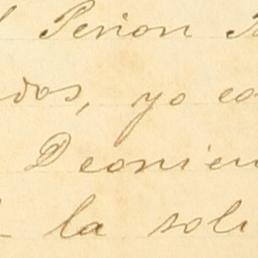 l Peñon
dos, yo co
Deonien
la soli